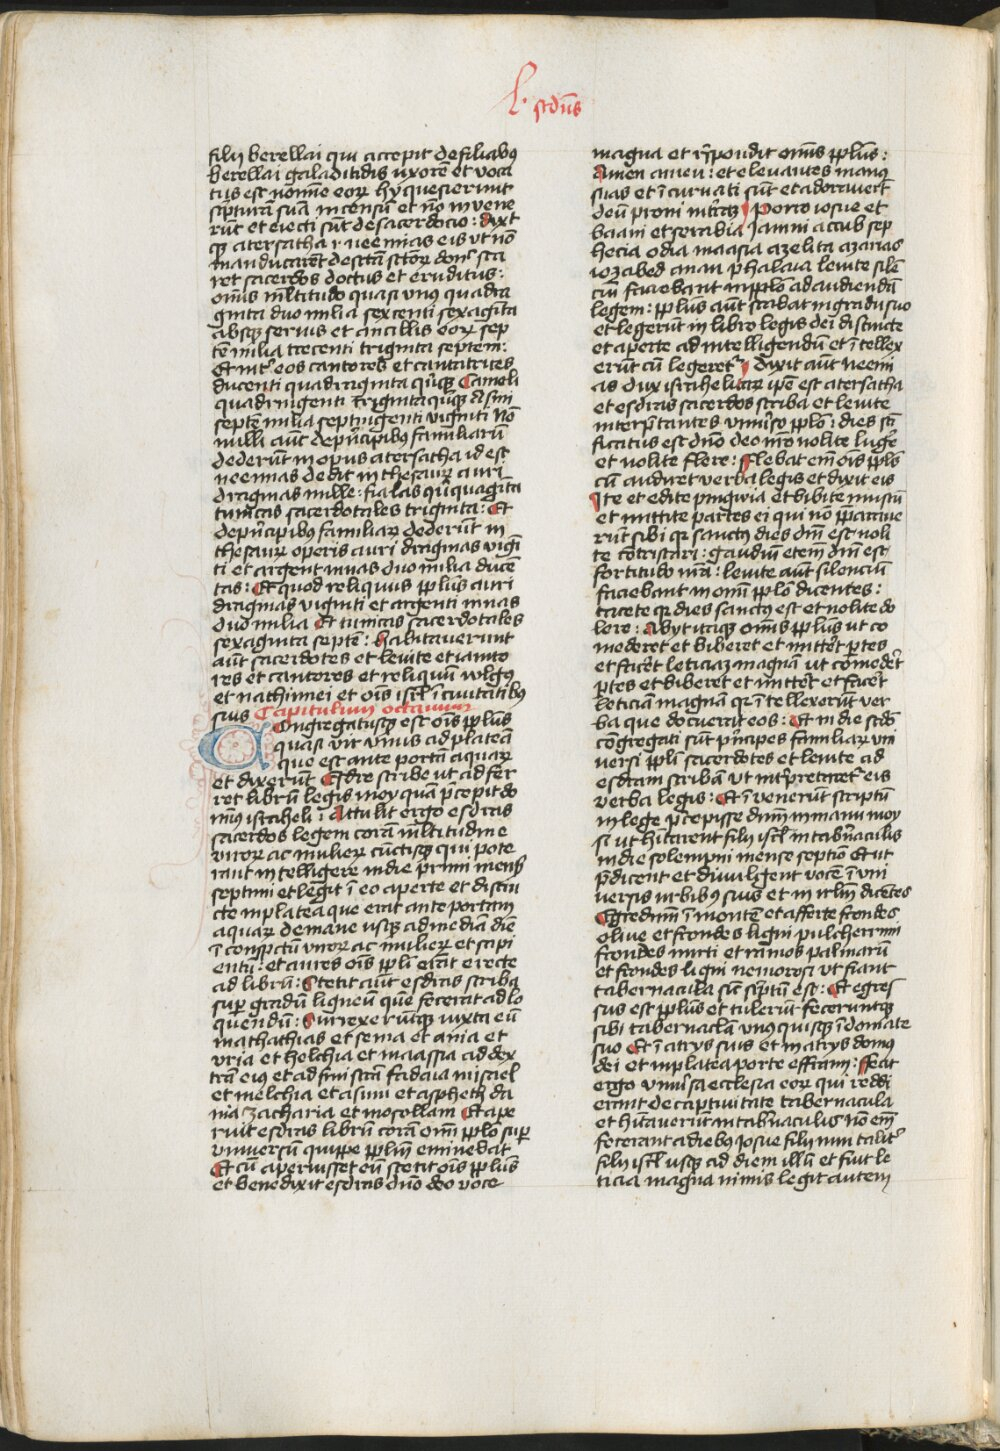 L. scdūs
filii berellai qui accepit de filiabus
berellai galaditidis uxorē et voca
tus est nomīe eorꝝ hy quesierunt
scpturā suā in censū et nō invene
rūt et eiecti sūt de sacerdocio : dixit
qꝫ atersatha i neemias eis ut nō
manducarēt de sctā sctōꝝ donͨ sta
ret sacerdos doctus et eruditus :
omīs mltitudo quasi unꝰ quadra
ginta duo milia sexcenti sexagīta
absqꝫ seruis et ancillis eorꝝ sep
tē milia trecenti triginta septem :
Et intˀ eos cantores et cantatrices
ducenti quadraginta qīqꝫ Cameli
quadringenti triginta qīqꝫ Asini
septē milia septingenti viginti Nō
nulli aūt de pͥncipibꝰ familiarū
dederūt in opus atersatha id est
neemias dedit in thesauꝝ auri
dragmas mille : fialas qīquagīta
tunicas sacerdotales triginta : Et
de pͥncipibꝰ familiaꝝ dederūt in
thesauꝝ operis auri dragmas vigī
ti et argenti mnas duo milia ducē
tas : Et quod reliquus pplus auri
dragmas viginti et argenti mnas
duo milia Et tunicas sacerdotales
sexaginta septē : habitauerunt
aūt sacerdotes et leuite et ianito
res et cantores et reliquū wlgꝰ
et nathinnei et oīs isrl ī ciuitatibꝰ
suis Capitulum octauum
Congregatusqꝫ est oīs pplus
quasi vir unus ad plateā
que est ante portā aquaꝝ
et dixerūt Esdre scribe ut adfer
ret librū legis moy quā pͨcepit do
mīus israheli : Attulit ergo esdras
sacerdos legem corā mltitudine
viroꝝ ac mulieꝝ cūctisqꝫ qui pote
rant intelligere in die primi mensꝭ
septimi et legit ī eo aperte et distin
cte in platea que erat ante portam
aquaꝝ de mane usqꝫ ad mediā diē
ī conspctū viroꝝ ac mulieꝝ et sapi
entū : et aures oīs ppli erāt erecte
ad librū : Stetit aūt esdras scriba
supˀ gradū ligneū quē fecerat ad lo
quendū : Surrexerūtqꝫ iuxta eū
mathathias et sema et ania et
vria et helchia et maassia ad dex
trā eiꝰ et ad sinistrā fadaia misael
et melchia et asum et aspheth da
nia zacharia et mosollam Et ape
ruit esdras librū corā omī pplo supˀ
vniuersū quippe pplm eminebat
Et cū aperuisset eū stetit oīs pplus
et benedixit esdras dño deo voce
magna et rn̄pondit omīs pplus :
Amen amen : et eleuantes manꝰ
suas et īcuruati sūt et adorauerūt
deū proni in tͬrā Porro iosue et
baani et serabia Jamni accub sep
hecia odia maasia azelita azarias
iozabed anan phalaia leuite silē
ciū faciebant in pplo ad audiendā
legem : pplus aūt stabat in gradu suo
et legerūt in libro legis dei distincte
et aperte ad intelligendū et ītellex
erūt cū legeretˀ dixit aūt neemi
as dux israhelitaꝝ ipē est atersatha
et esdras sacerdos scriba et leuite
interptantes vniuso pplo : dies scti
ficatus est dño deo nr̄o nolite luge
et nolite flere : Flebat em̄ oīs pplus
cū audiret verba legis et dixit eis
Ite et edite pinguia et bibite mustū
et mittite partes ei qui nō pparaue
rūt sibi qꝛ sanctꝰ dies dm̄ est noli
te cōtristari : gaudiū etem dm̄ est
fortitudo nr̄a : leuite aūt silenciū
faciebant in omī pplo dicentes :
tacete qꝛ dies sanctꝰ est et nolite do
lere : Abyt itaqꝫ omīs pplus ut co
mederet et biberet et mittet ptes
et facet leticiaꝫ magnā ut comedet
ptes et biberet et mittet et facet
leticiam magnā qꝛ ītellexerūt ver
ba que docuerat eos : Et in die scdo
cōgregati sūt pͥncipes familiaꝝ vni
uersi ppli sacerdotes et leuite ad
esdram scribā ut intpretaretˀ eis
verba legis : Et īuenerūt scriptū
in lege pͨcepisse dnm in manu moy
si ut hitarent filii isrl in tabnaculis
in die solempni mense septīo Et ut
pͥdicent et diuulgent vocē ī vni
uersis urbibꝰ suis et in irlm dicētes
Egredimī ī montē et afferte frondes
oliue et frondes ligni pulcherrimi
frondes mirti et ramos palmarū
et frondes ligni nemorosi ut fiant
tabernacula sicut scptū est : Et egres
sus est pplus et tulerūt feceruntqꝫ
sibi tabernacla vnꝰquisqꝫ ī domate
suo Et ī atrys suis et in atrys domꝰ
dei et in platea porte effraim : Fecit
ergo vniusa ecclesia eoꝝ qui reddi
erant de captiuitate tabernacula
et hitauerūt in tabnaculis nō em̄
fecerant a diebꝰ Josue filii nun talitˀ
filii isrl usqꝫ ad diem illū et fuit le
ticia magna nimis legit autem